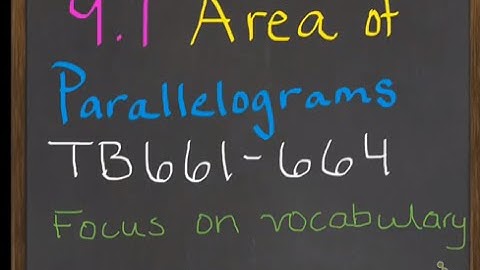 9.1 Area of
Parallelograms
TB661-664
Focus on vocabulary